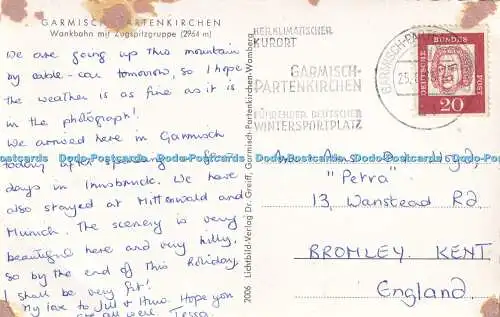 GARMISCH-PARTENKIRCHEN
Wankbahn mit Zugspitzgruppe (2964 m)
We are going up this mountain
by cable-car tomorrow, so I hope
the weather is as fine as it is
in the photograph!
We arrived here in Garmisch
today after spending a few
days in Innsbruck. We have
also stayed at Mittenwald and
Munich. The scenery is very
beautiful here and very hilly,
so by the end of this holiday,
I shall be very fit!
My love to Jill & Huw. Hope you
are all well. Tessa.
2006 Lichtbild-Verlag Dr. Greiff, Garmisch-Partenkirchen-Wamberg
HEILKLIMATISCHER
KURORT
GARMISCH-
PARTENKIRCHEN
FÜHRENDER DEUTSCHER
WINTERSPORTPLATZ
GARMISCH-PARTE
25.
DEUTSCHE
BUNDES
POST
20
Mrs D.
"Petra"
13, Wanstead Rd
BROMLEY, KENT.
England.
Dodo-Postcards Dodo-Postcards Dodo-Postcards Dodo-Postcards Dodo-Postcards Dodo-Postcards